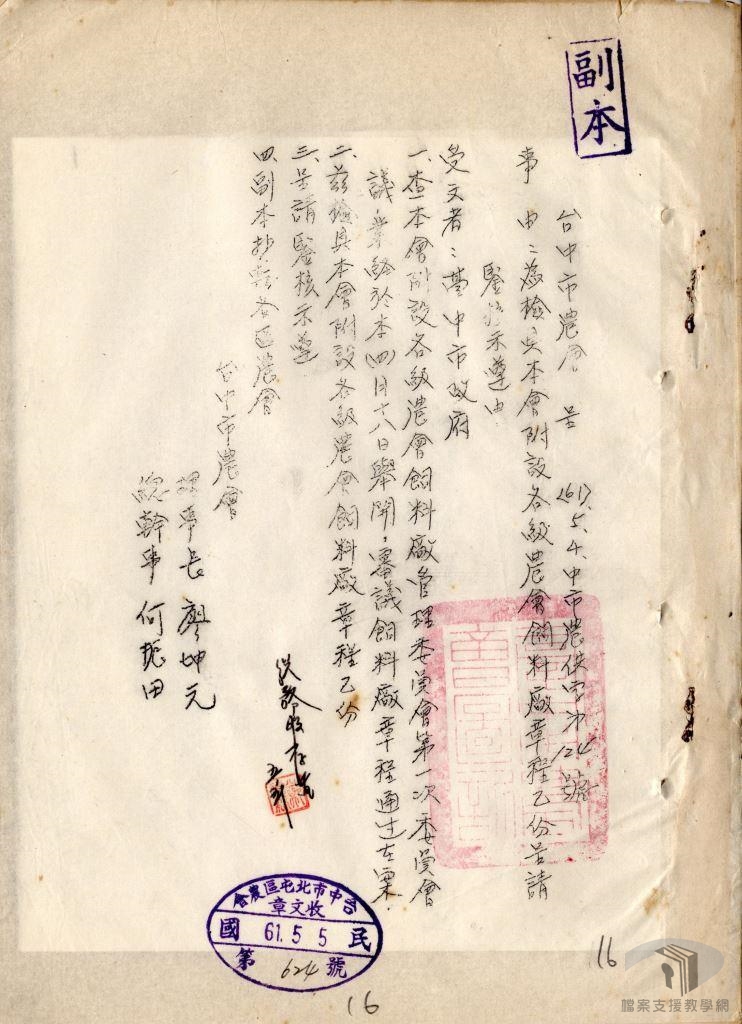 副本
台中市農會 呈 (61)、5、4、中市農供字第124號
事 由：為檢具本會附設各級農會飼料廠章程乙份呈請
鑒核示遵由
受文者：臺中市政府
一、查本會附設各級農會飼料廠管理委員會第一次委員會
議，業經於本(四)月十八日舉開，審議飼料廠章程通過在案。
二、茲檢具本會附設各級農會飼料廠章程乙份
三、呈請鑒核示遵
四、副本抄轉各區農會
台中市農會
理事長 廖坤元
總幹事 何 田
台中市北屯區農會
收文章
民國 61. 5 5
第 624 號
16
16
檔案支援教學網